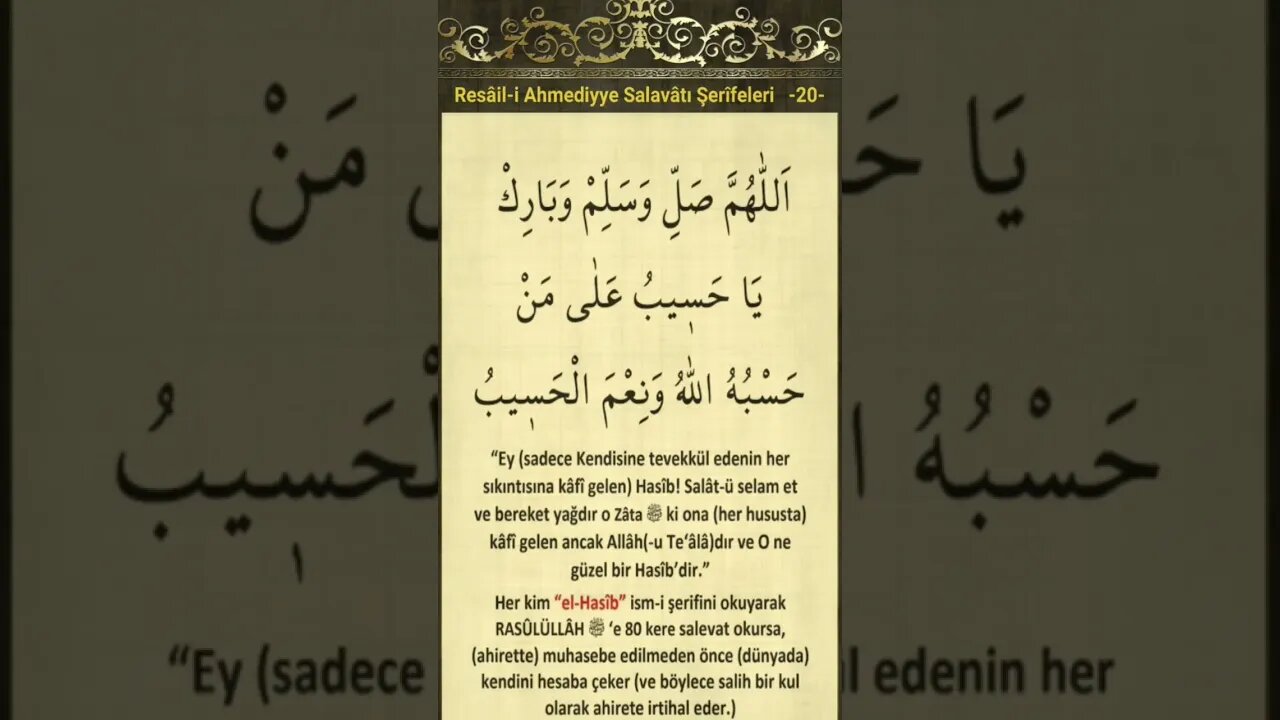 Resâil-i Ahmediyye Salavâtı Şerîfeleri -20-
اَللّٰهُمَّ صَلِّ وَسَلِّمْ وَبَارِكْ
يَا حَسٖيبُ عَلٰى مَنْ
حَسْبُهُ اللّٰهُ وَنِعْمَ الْحَسٖيبُ
“Ey (sadece Kendisine tevekkül edenin her
sıkıntısına kâfî gelen) Hasîb! Salât-ü selam et
ve bereket yağdır o Zâta ﷺ ki ona (her hususta)
kâfî gelen ancak Allâh(-u Te‘âlâ)dır ve O ne
güzel bir Hasîb’dir.”
Her kim “el-Hasîb” ism-i şerifini okuyarak
RASÛLÜLLÂH ﷺ ‘e 80 kere salevat okursa,
(ahirette) muhasebe edilmeden önce (dünyada)
kendini hesaba çeker (ve böylece salih bir kul
olarak ahirete irtihal eder.)